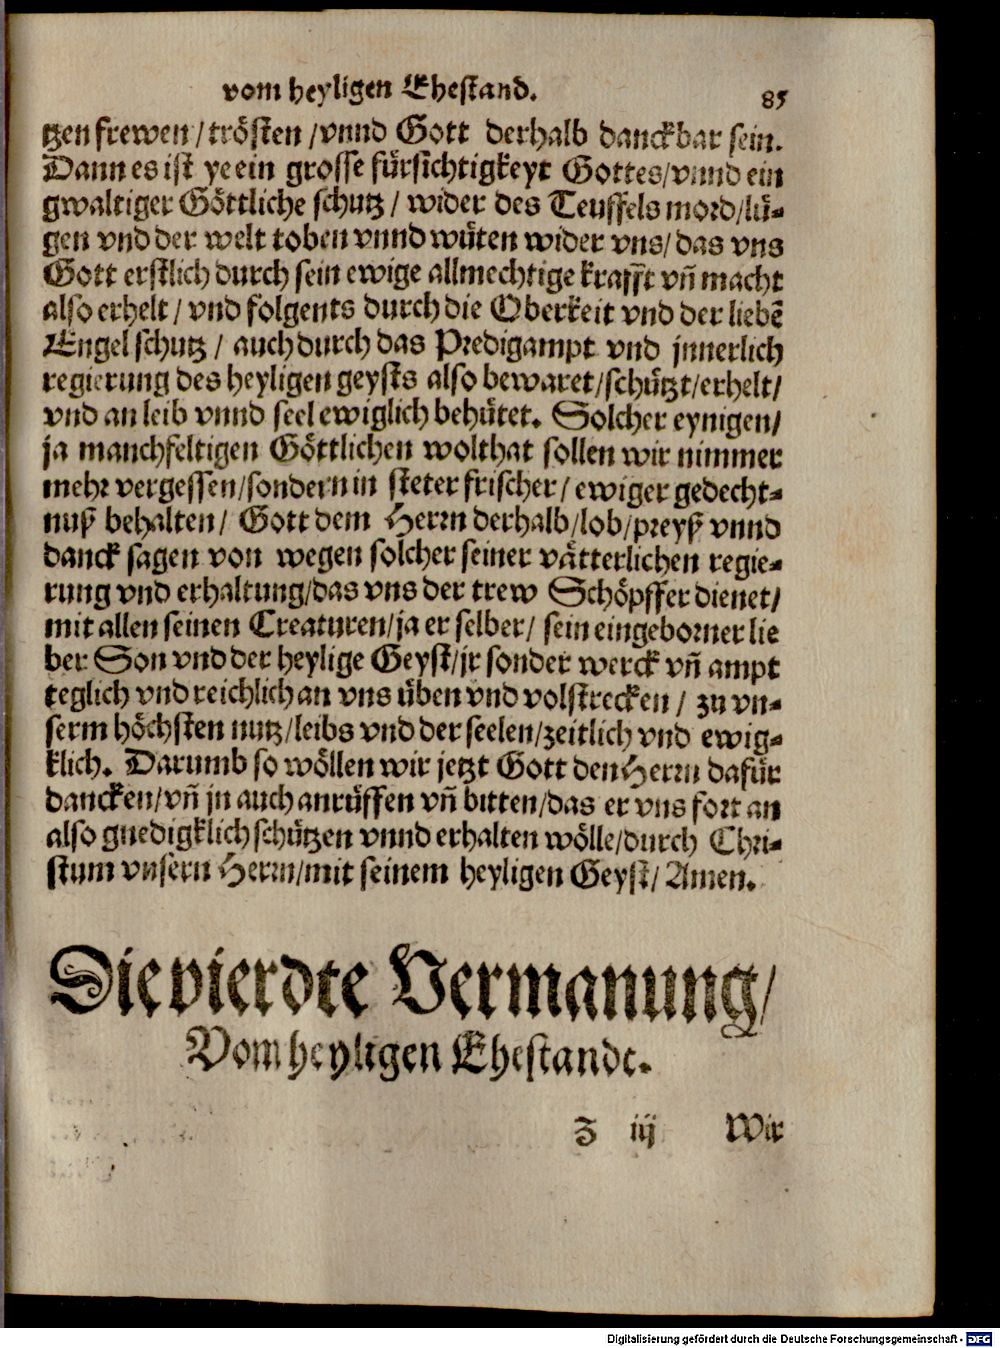 vom heyligen Ehestand.
85
tzen frewen/trösten/vnnd Gott derhalb danckbar sein.
Dann es ist ye ein grosse fürsichtigkeyt Gottes/vnnd ein
gwaltiger Göttliche schutz/ wider des Teuffels mord/lü-
gen vnd der welt toben vnnd wüten wider vns/das vns
Gott erstlich durch sein ewige allmechtige krafft vñ macht
also erhelt/ vnd folgents durch die Oberkeit vnd der liebẽ
Engel schutz/ auch durch das Predigampt vnd jnnerlich
regierung des heyligen geysts also bewaret/schützt/erhelt/
vnd an leib vnnd seel ewiglich behütet. Solcher eynigen/
ja manchfeltigen Göttlichen wolthat sollen wir nimmer
mehr vergessen/sondern in steter frischer/ ewiger gedecht-
nuß behalten/ Gott dem Herrn derhalb/lob/preyß vnnd
danck sagen von wegen solcher seiner vätterlichen regie-
rung vnd erhaltung/das vns der trew Schöpffer dienet/
mit allen seinen Creaturen/ja er selber/ sein eingeborner lie
ber Son vnd der heylige Geyst/jr sonder werck vñ ampt
teglich vnd reichlich an vns üben vnd volstrecken/ zu vn-
serm höchsten nutz/leibs vnd der seelen/zeitlich vnd ewig-
klich. Darumb so wöllen wir jetzt Gott den Herrn dafür
dancken/vñ jn auch anrüffen vñ bitten/das er vns fort an
also gnedigklich schützen vnnd erhalten wölle/durch Chri-
stum vnsern Herrn/mit seinem heyligen Geyst/ Amen.
Die vierdte Vermanung/
Vom heyligen Ehestande.
Z iij Wir
Digitalisierung gefördert durch die Deutsche Forschungsgemeinschaft - DFG